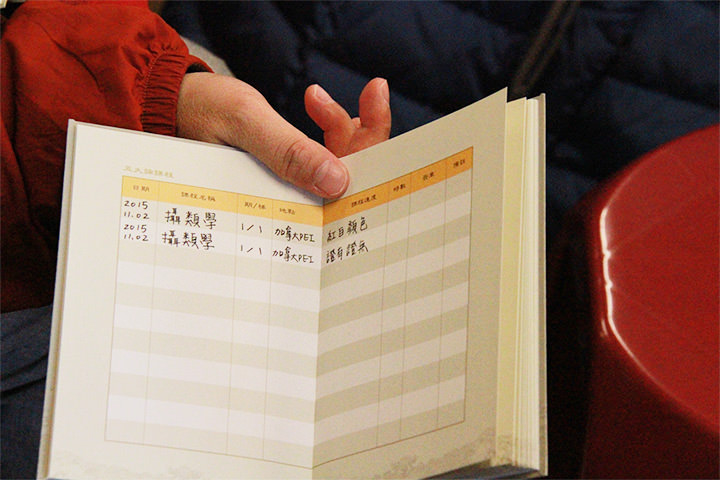 五大論課程
日期 課程名稱 期/梯 地點 課程進度 時數 夜業 備註
2015 11.02 攝類學 1/1 加拿大PEI 紅白顏色
2015 11.02 攝類學 1/1 加拿大PEI 證有證無